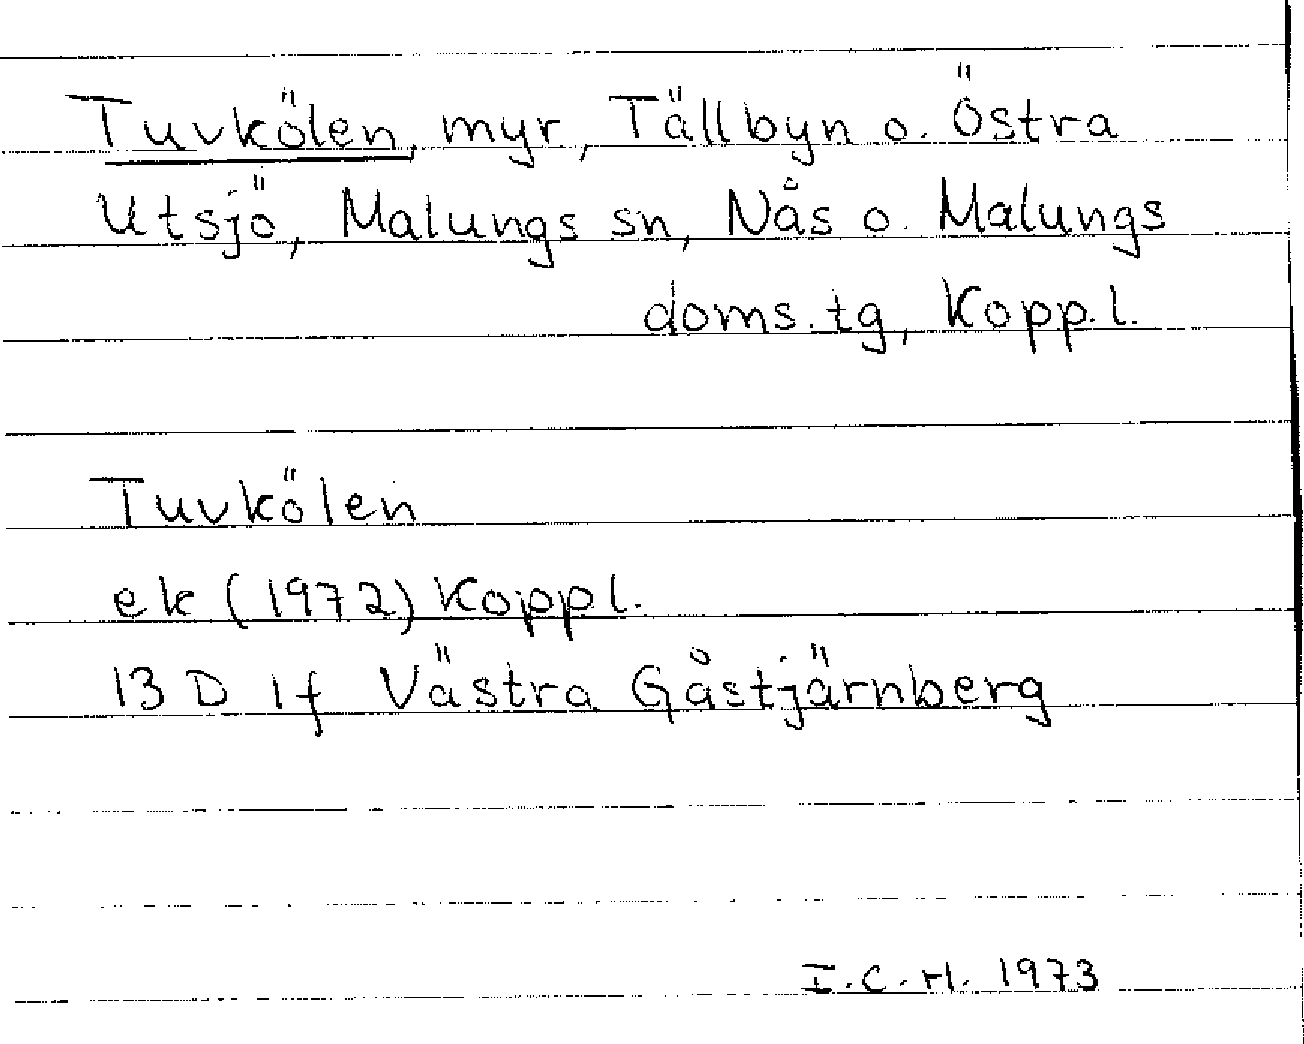 Tuvkölen, myr, Tällbyn o. Östra
Utsjö, Malungs sn, Nås o. Malungs
doms.tg, Kopp.l.
Tuvkölen
ek (1972) Koppl.
13 D 1f Västra Gåstjärnberg
I.C.H. 1973